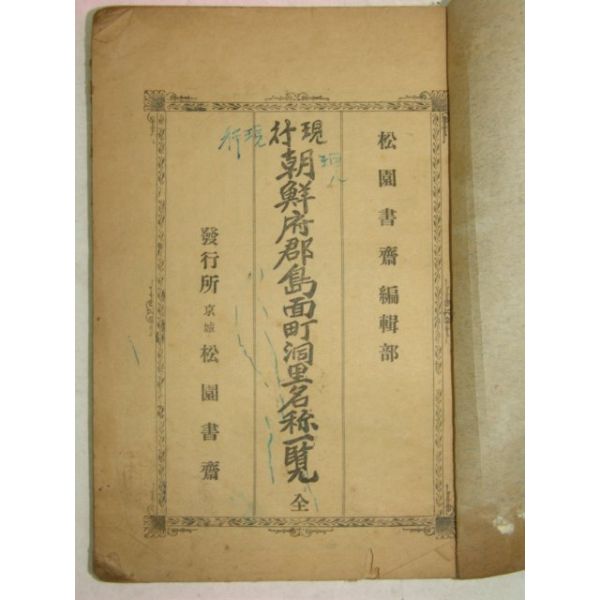 松園書齋編輯部
現行
朝鮮府郡島面町洞里名称一覧 全
現行
發行所 京城 松園書齋